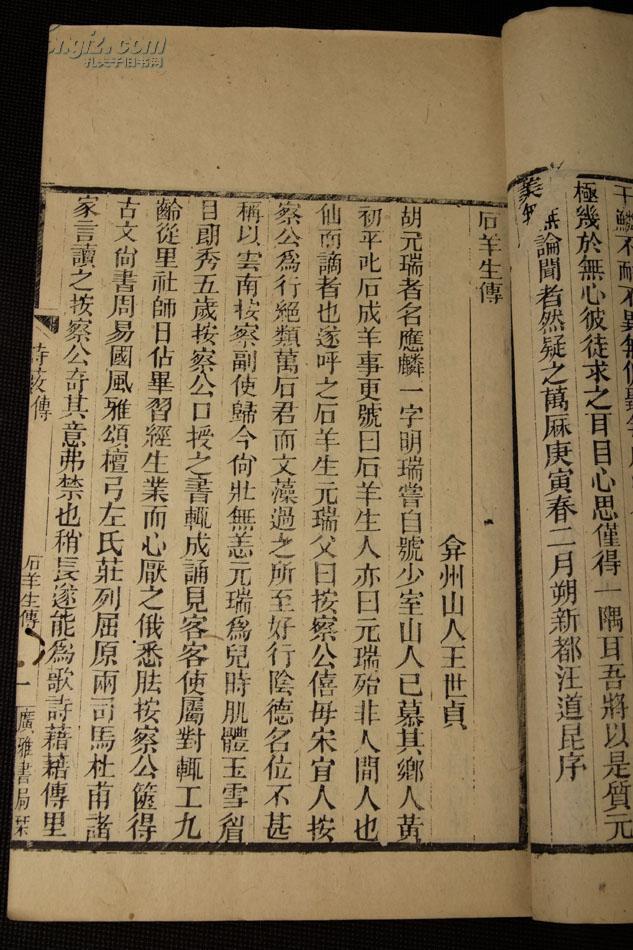 極幾於無心彼徒求之耳目心思僅得一隅耳吾將以是質元
論聞者然疑之萬厤庚寅春二月朔新都汪道昆序
石羊生傳
弇州山人王世貞
胡元瑞者名應麟一字明瑞嘗自號少室山人已慕其鄉人黃
初平叱石成羊事更號曰石羊生人亦曰元瑞殆非人間人也
仙而謫者也遂呼之石羊生元瑞父曰按察公僖母宋宜人按
察公爲行絕類萬石君而文藻過之所至好行陰德名位不甚
稱以雲南按察副使歸今尙壯無恙元瑞爲兒時肌體玉雪眉
目朗秀五歲按察公口授之書輒成誦見客客使屬對輒工九
齡從里社師日佔畢習經生業而心厭之俄悉胠按察公篋得
古文尙書周易國風雅頌檀弓左氏莊列屈原兩司馬杜甫諸
家言讀之按察公奇其意弗禁也稍長遂能爲歌詩藉藉傳里
詩藪傳
石羊生傳
一
廣雅書局栞
孔夫子旧书网